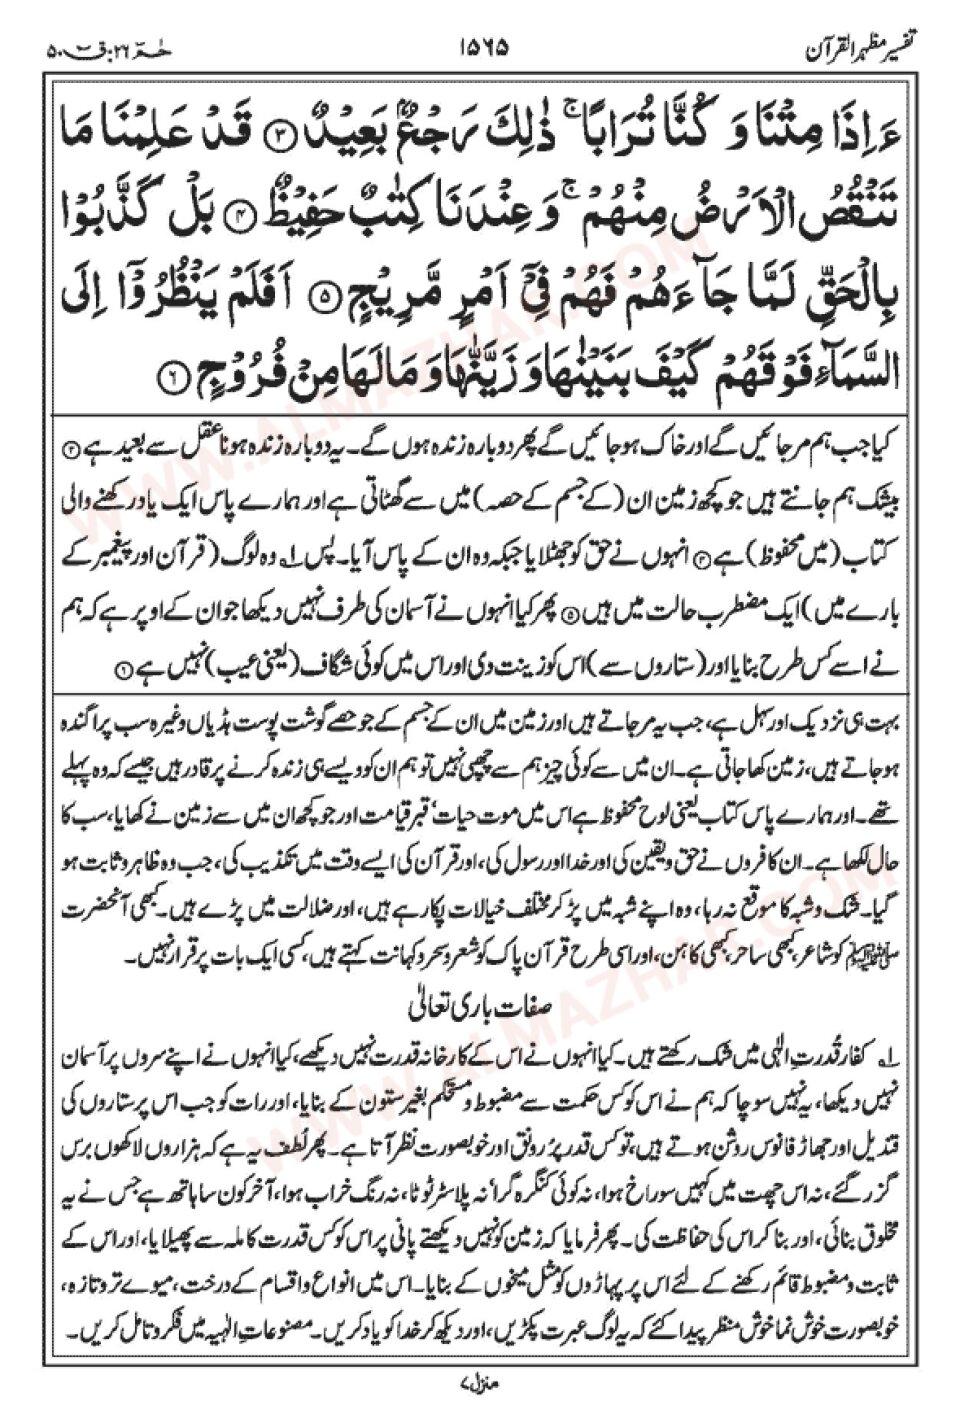 تفسیر مظہر القرآن
۱۵۶۵
حٰمٓ ۲۶: قٓ ۵۰
ءَاِذَا مِتْنَا وَكُنَّا تُرَابًا ۚ ذٰلِكَ رَجْعٌۢ بَعِيْدٌ ۝۳ قَدْ عَلِمْنَا مَا
تَنْقُصُ الْاَرْضُ مِنْهُمْ ۚ وَعِنْدَنَا كِتٰبٌ حَفِيْظٌ ۝۴ بَلْ كَذَّبُوْا
بِالْحَقِّ لَمَّا جَآءَهُمْ فَهُمْ فِيْٓ اَمْرٍ مَّرِيْجٍ ۝۵ اَفَلَمْ يَنْظُرُوْٓا اِلَى
السَّمَآءِ فَوْقَهُمْ كَيْفَ بَنَيْنٰهَا وَزَيَّنّٰهَا وَمَا لَهَا مِنْ فُرُوْجٍ ۝۶
کیا جب ہم مر جائیں گے اور خاک ہو جائیں گے پھر دوبارہ زندہ ہوں گے۔ یہ دوبارہ زندہ ہونا عقل سے بعید ہے ۝۳
بیشک ہم جانتے ہیں جو کچھ زمین ان (کے جسم کے حصہ) میں سے گھٹاتی ہے اور ہمارے پاس ایک یاد رکھنے والی
کتاب (میں محفوظ) ہے ۝۴ انہوں نے حق کو جھٹلایا جبکہ وہ ان کے پاس آیا۔ پس ۱؎ وہ لوگ (قرآن اور پیغمبر کے
بارے میں) ایک مضطرب حالت میں ہیں ۝۵ پھر کیا انہوں نے آسمان کی طرف نہیں دیکھا جو ان کے اوپر ہے کہ ہم
نے اسے کس طرح بنایا اور (ستاروں سے) اس کو زینت دی اور اس میں کوئی شگاف (یعنی عیب) نہیں ہے ۝۶
بہت ہی نزدیک اور سہل ہے، جب یہ مر جاتے ہیں اور زمین میں ان کے جسم کے جو حصے گوشت پوست ہڈیاں وغیرہ سب پراگندہ
ہو جاتے ہیں، زمین کھا جاتی ہے۔ ان میں سے کوئی چیز ہم سے چھپی نہیں تو ہم ان کو ویسے ہی زندہ کرنے پر قادر ہیں جیسے کہ وہ پہلے
تھے۔ اور ہمارے پاس کتاب یعنی لوح محفوظ ہے اس میں موت حیات، قبر قیامت اور جو کچھ ان میں سے زمین نے کھایا، سب کا
حال لکھا ہے۔ ان کافروں نے حق و یقین کی اور خدا اور رسول کی، اور قرآن کی ایسے وقت میں تکذیب کی، جب وہ ظاہر و ثابت ہو
گیا۔ شک و شبہ کا موقع نہ رہا، وہ اپنے شبہ میں پڑ کر مختلف خیالات پکا رہے ہیں، اور ضلالت میں پڑے ہیں۔ کبھی آنحضرت
ﷺ کو شاعر، کبھی ساحر، کبھی کاہن، اور اسی طرح قرآن پاک کو شعر و سحر و کہانت کہتے ہیں، کسی ایک بات پر قرار نہیں۔
صفات باری تعالیٰ
۱؎ کفار قُدرتِ الٰہی میں شک رکھتے ہیں۔ کیا انہوں نے اس کے کارخانہ قدرت نہیں دیکھے، کیا انہوں نے اپنے سروں پر آسمان
نہیں دیکھا، یہ نہیں سوچا کہ ہم نے اس کو کس حکمت سے مضبوط و مستحکم بغیر ستون کے بنایا، اور رات کو جب اس پر ستاروں کی
قندیل اور جھاڑ فانوس روشن ہوتے ہیں، تو کس قدر پُر رونق اور خوبصورت نظر آتا ہے۔ پھر لُطف یہ ہے کہ ہزاروں لاکھوں برس
گزر گئے، نہ اس چھت میں کہیں سوراخ ہوا، نہ کوئی کنگرہ گرا، نہ پلاسٹر ٹوٹا، نہ رنگ خراب ہوا، آخر کون سا ہاتھ ہے جس نے یہ
مخلوق بنائی، اور بنا کر اس کی حفاظت کی۔ پھر فرمایا کہ زمین کو نہیں دیکھتے پانی پر اس کو کس قدرت کاملہ سے پھیلایا، اور اس کے
ثابت و مضبوط قائم رکھنے کے لئے اس پر پہاڑوں کو مثل میخوں کے بنایا۔ اس میں انواع و اقسام کے درخت، میوے تر و تازہ،
خوبصورت خوش نما خوش منظر پیدا کئے کہ یہ لوگ عبرت پکڑیں، اور دیکھ کر خدا کو یاد کریں۔ مصنوعاتِ الٰہیہ میں فکر و تامل کریں۔
منزل ۷
WWW.ALMAZHAR.COM
WWW.ALMAZHAR.COM